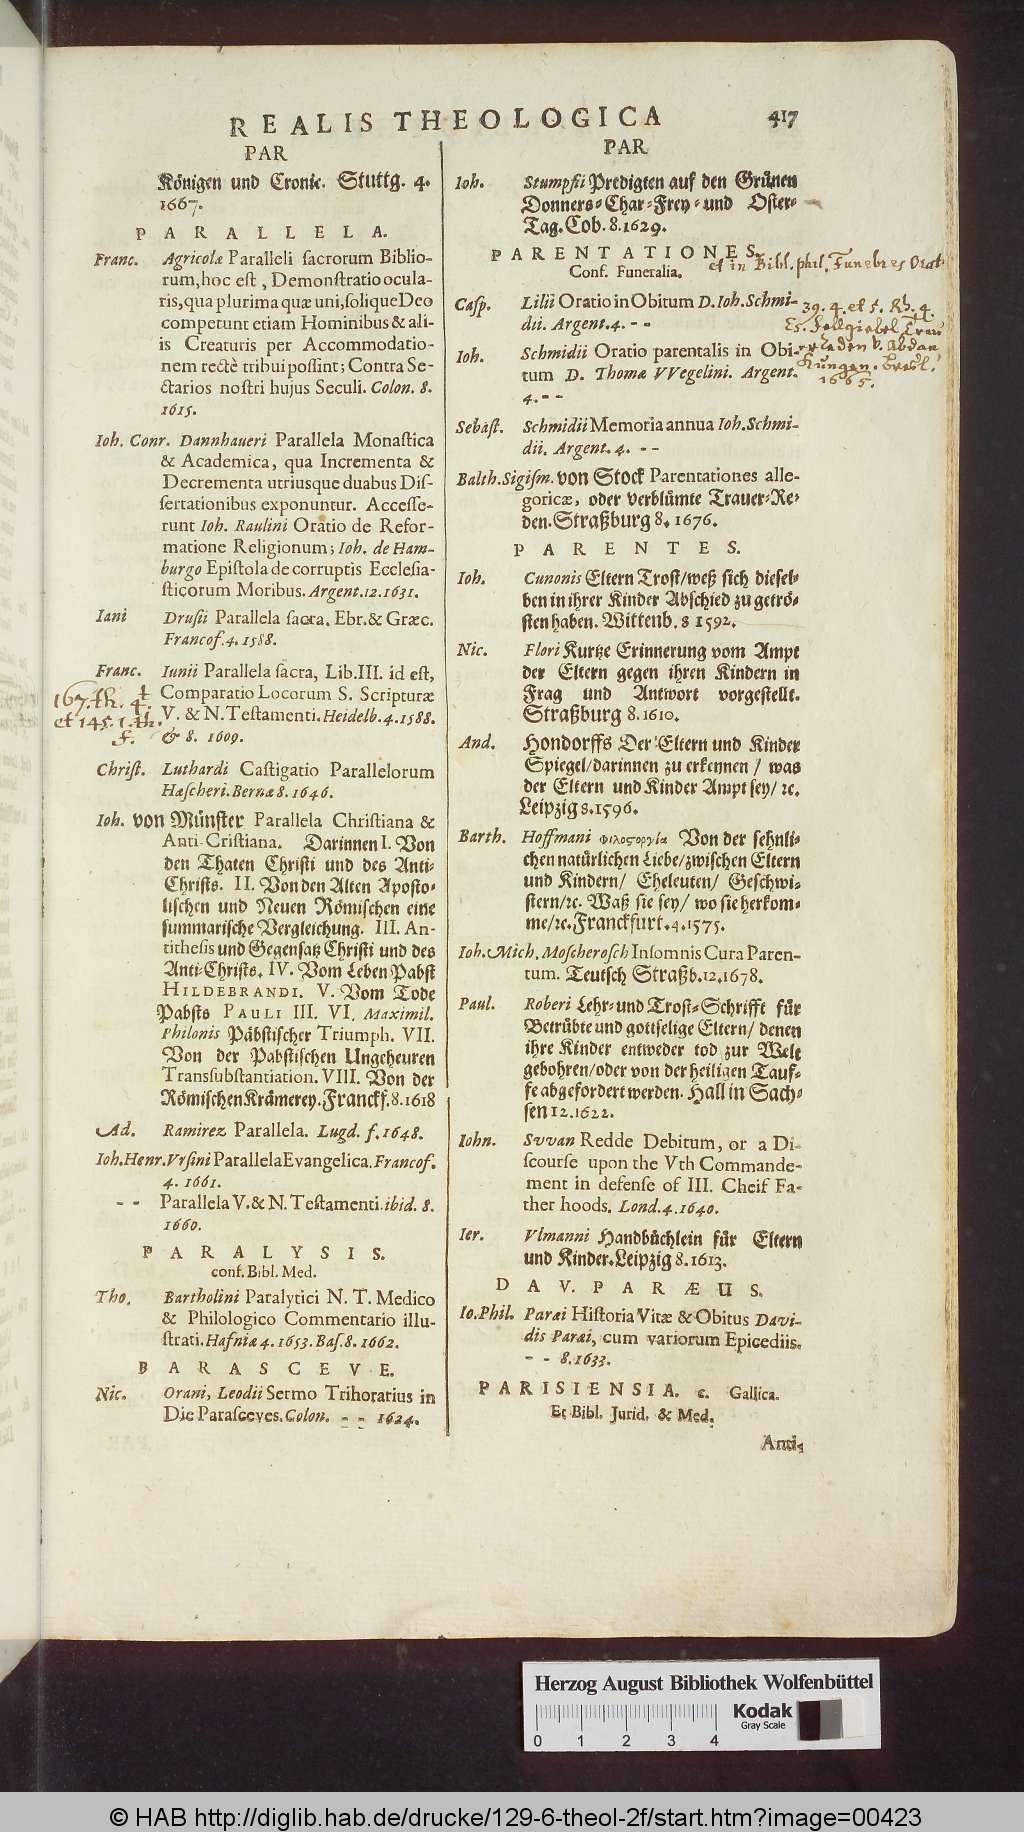 REALIS THEOLOGICA 417
PAR
Königen und Cronic. Stuttg. 4.
1667.
PARALLELA.
Franc. Agricolæ Paralleli sacrorum Biblio-
rum, hoc est, Demonstratio ocula-
ris, qua plurima quæ uni, solique Deo
competunt etiam Hominibus & ali-
is Creaturis per Accommodatio-
nem rectè tribui possint; Contra Se-
ctarios nostri hujus Seculi. Colon. 8.
1615.
Ioh. Conr. Dannhaueri Parallela Monastica
& Academica, qua Incrementa &
Decrementa utriusque duabus Dis-
sertationibus exponuntur. Accesse-
runt Ioh. Raulini Oratio de Refor-
matione Religionum; Ioh. de Ham-
burgo Epistola de corruptis Ecclesia-
sticorum Moribus. Argent. 12. 1631.
Iani Drusii Parallela sacra. Ebr. & Græc.
Francof. 4. 1588.
Franc. Iunii Parallela sacra, Lib. III. id est,
Comparatio Locorum S. Scripturæ
V. & N. Testamenti. Heidelb. 4. 1588.
& 8. 1609.
167. th. 4.
et 145. 1. th.
f.
Christ. Luthardi Castigatio Parallelorum
Hæscheri. Bernæ 8. 1646.
Ioh. von Münster Parallela Christiana &
Anti-Cristiana. Darinnen I. Von
den Thaten Christi und des Anti-
Christs. II. Von den Alten Aposto-
lischen und Neuen Römischen eine
summarische Vergleichung. III. An-
tithesis und Gegensatz Christi und des
Anti-Christs. IV. Vom Leben Pabst
HILDEBRANDI. V. Vom Tode
Pabsts PAULI III. VI. Maximil.
Philonis Päbstischer Triumph. VII.
Von der Pabstischen Ungeheuren
Transsubstantiation. VIII. Von der
Römischen Krämerey. Franckf. 8. 1618
Ad. Ramirez Parallela. Lugd. f. 1648.
Ioh. Henr. Vrsini Parallela Evangelica. Francof.
4. 1661.
- - Parallela V. & N. Testamenti. ibid. 8.
1660.
PARALYSIS.
conf. Bibl. Med.
Tho. Bartholini Paralytici N. T. Medico
& Philologico Commentario illu-
strati. Hafniæ 4. 1653. Bas. 8. 1662.
PARASCEVE.
Nic. Orani, Leodii Sermo Trihorarius in
Die Parasceves. Colon. - - 1624.
PAR
Ioh. Stumpfii Predigten auf den Grünen
Donners-Char-Frey- und Oster-
Tag. Cob. 8. 1629.
PARENTATIONES.
Conf. Funeralia.
et in Bibl. phil. Funebres Orat.
Casp. Lilii Oratio in Obitum D. Ioh. Schmi-
dii. Argent. 4. - -
39. 4. et 5.
Ioh. Schmidii Oratio parentalis in Obi-
tum D. Thomæ VVegelini. Argent.
4. - -
1665.
Sebast. Schmidii Memoria annua Ioh. Schmi-
dii. Argent. 4. - -
Balth. Sigism. von Stock Parentationes alle-
goricæ, oder verblümte Trauer-Re-
den. Straßburg 8. 1676.
PARENTES.
Ioh. Cunonis Eltern Trost/ weß sich diesel-
ben in ihrer Kinder Abschied zu getrö-
sten haben. Wittenb. 8 1592.
Nic. Flori Kurtze Erinnerung vom Ampt
der Eltern gegen ihren Kindern in
Frag und Antwort vorgestellt.
Straßburg 8. 1610.
And. Hondorffs Der Eltern und Kinder
Spiegel/ darinnen zu erkennen / was
der Eltern und Kinder Ampt sey/ ꝛc.
Leipzig 8. 1596.
Barth. Hoffmani Φιλοςοργία Von der sehnli-
chen natürlichen Liebe/ zwischen Eltern
und Kindern/ Eheleuten/ Geschwi-
stern/ ꝛc. Waß sie sey/ wo sie herkom-
me/ ꝛc. Franckfurt. 4. 1575.
Ioh. Mich. Moscherosch Insomnis Cura Paren-
tum. Teutsch Straßb. 12. 1678.
Paul. Roberi Lehr- und Trost-Schrifft für
Betrübte und gottselige Eltern/ denen
ihre Kinder entweder tod zur Welt
gebohren/ oder von der heiligen Tauf-
fe abgefordert werden. Hall in Sach-
sen 12. 1622.
Iohn. Svvan Redde Debitum, or a Di-
scourse upon the Vth Commande-
ment in defense of III. Cheif Fa-
ther hoods. Lond. 4. 1640.
Ier. Vlmanni Handbüchlein für Eltern
und Kinder. Leipzig 8. 1613.
DAV. PARÆUS.
Io. Phil. Paræi Historia Vitæ & Obitus Davi-
dis Paræi, cum variorum Epicediis.
- - 8. 1633.
PARISIENSIA. c. Gallica.
Et Bibl. Jurid. & Med.
Anti-
Herzog August Bibliothek Wolfenbüttel
Kodak
Gray Scale
0 1 2 3 4
© HAB http://diglib.hab.de/drucke/129-6-theol-2f/start.htm?image=00423